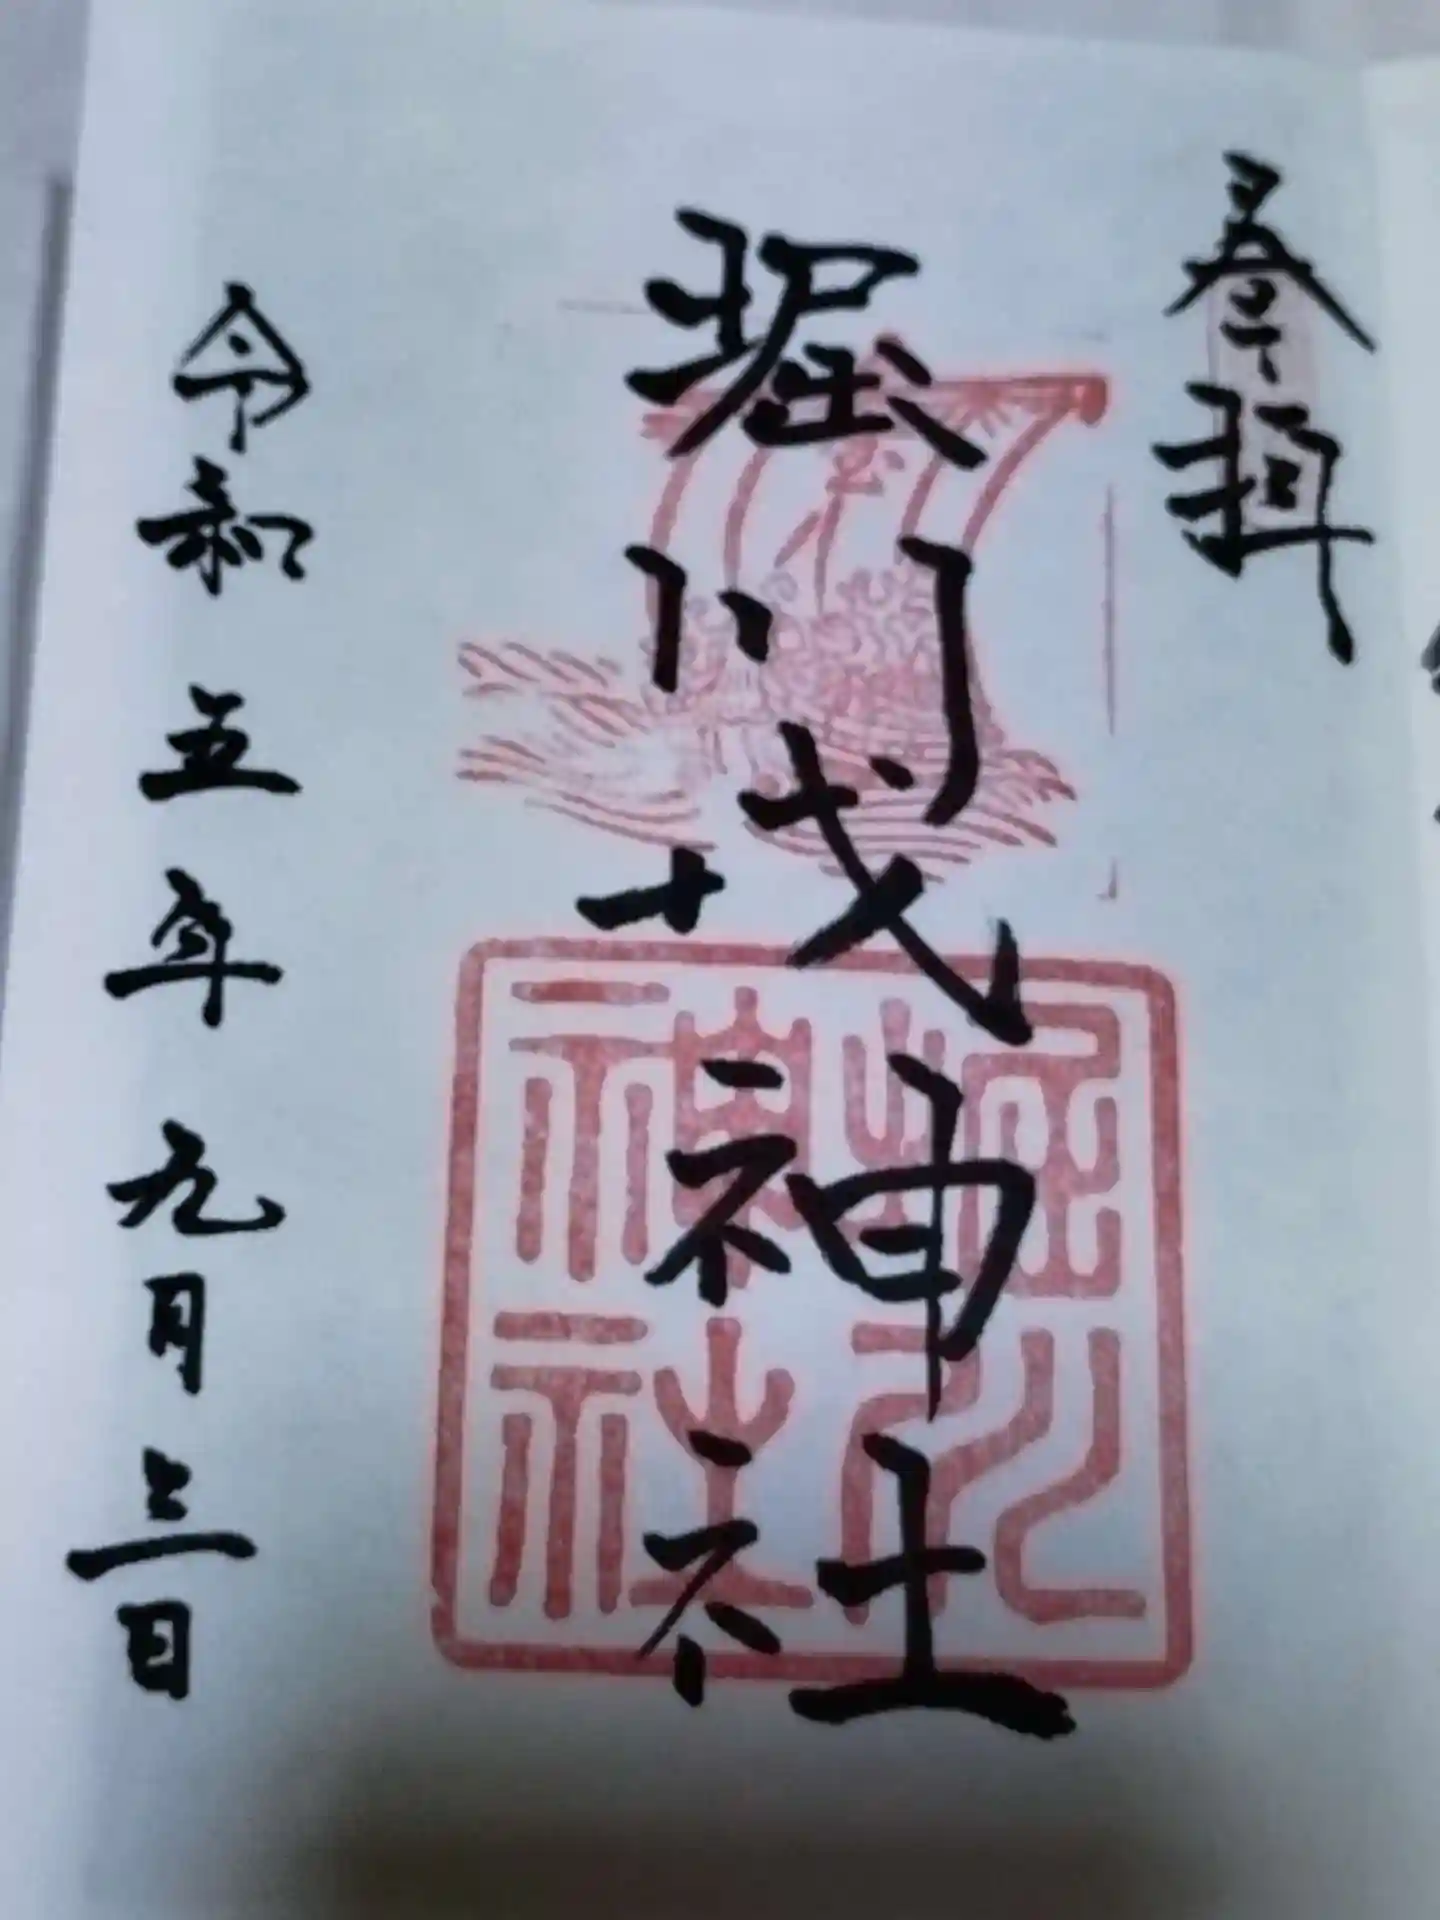 奉拝
堀川戎神社
堀川
神社
令和五年九月三日